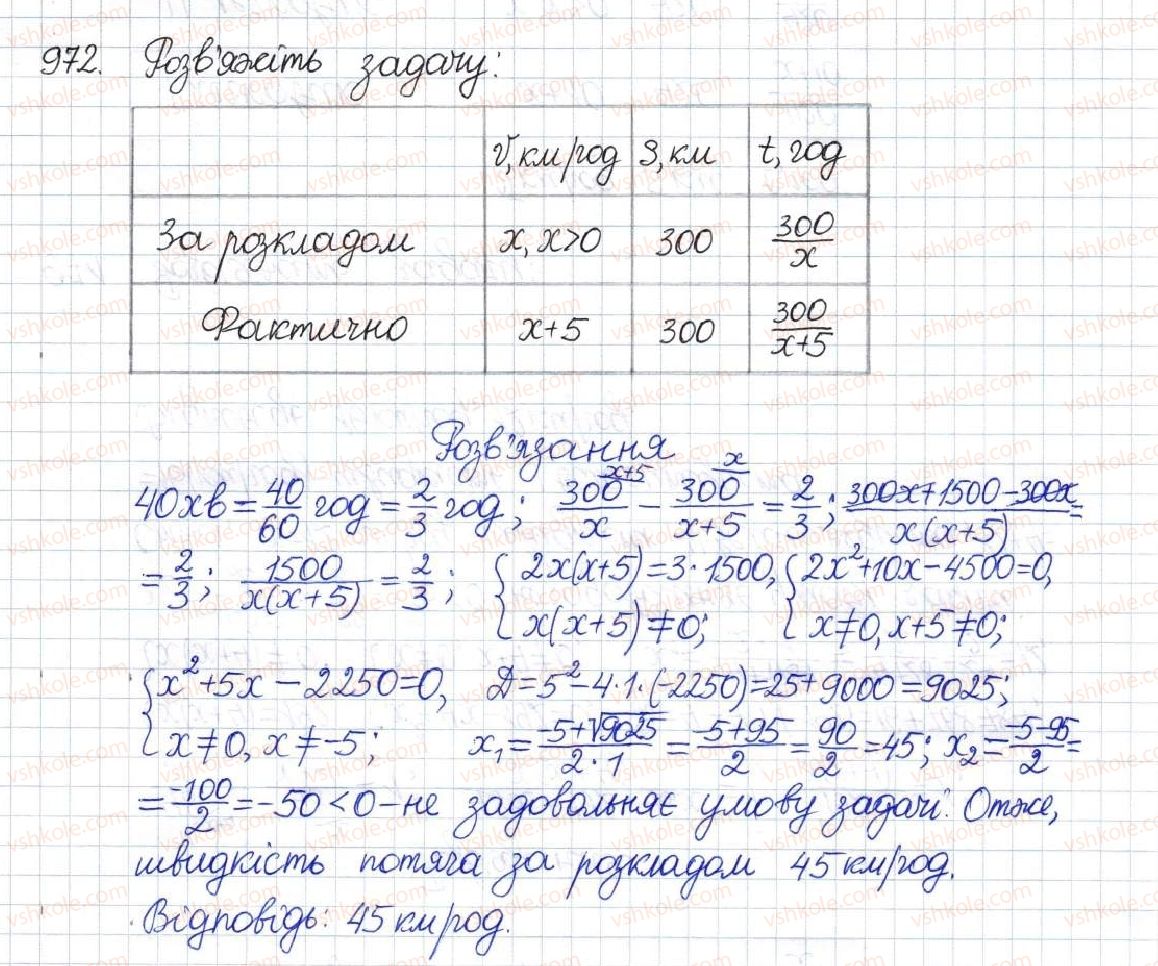 972. Розв'яжіть задачу:
V, км/год S, км t, год
За розкладом x, x>0 300 300/x
Фактично x+5 300 300/(x+5)
Розв'язання
40хв = 40/60 год = 2/3 год; 300/x (x+5) − 300/(x+5) (x) = 2/3; (300x+1500−300x)/(x(x+5)) =
= 2/3; 1500/(x(x+5)) = 2/3; { 2x(x+5)=3·1500, x(x+5)≠0; { 2x²+10x−4500=0, x≠0, x+5≠0;
{ x²+5x−2250=0, x≠0, x≠−5; Д=5²−4·1·(−2250)=25+9000=9025;
x₁ = (−5+√9025)/(2·1) = (−5+95)/2 = 90/2 = 45; x₂ = (−5−95)/2 =
= −100/2 = −50 < 0 − не задовольняє умову задачі. Отже,
швидкість потяга за розкладом 45 км/год.
Відповідь: 45 км/год.
vshkole.com